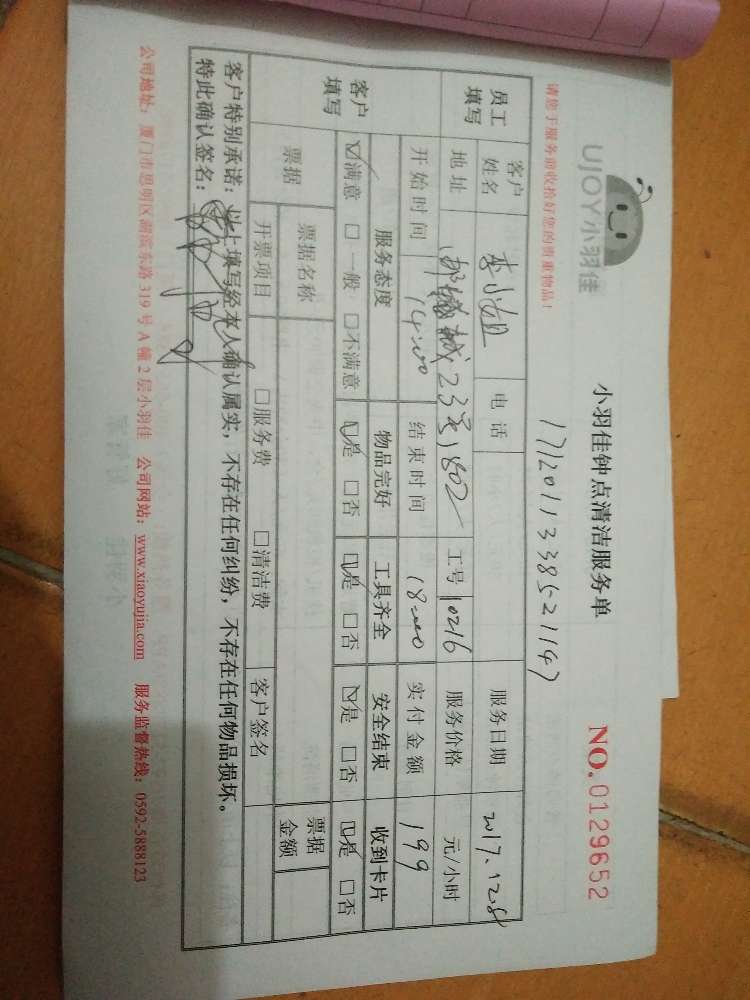 UJOY小羽佳
小羽佳钟点清洁服务单
NO.0129652
请您于服务前收拾好您的贵重物品！
1712011338521147
员工填写 客户姓名 李小姐 电话 服务日期 2017.12.8
地址 城23号1802 工号 10216 服务价格 元/小时
开始时间 14:00 结束时间 18:00 实付金额 199
客户填写 服务态度 物品完好 工具齐全 安全结束 收到卡片
☑满意 □一般 □不满意 ☑是 □否 ☑是 □否 ☑是 □否 ☑是 □否
票据 票据名称 票据金额
开票项目 □服务费 □清洁费 客户签名
客户特别承诺：以上填写经本人确认属实，不存在任何纠纷，不存在任何物品损坏。
特此确认签名：
公司地址：厦门市思明区湖滨东路319号A幢2层小羽佳 公司网站：www.xiaoyujia.com 服务监督热线：0592-5888123